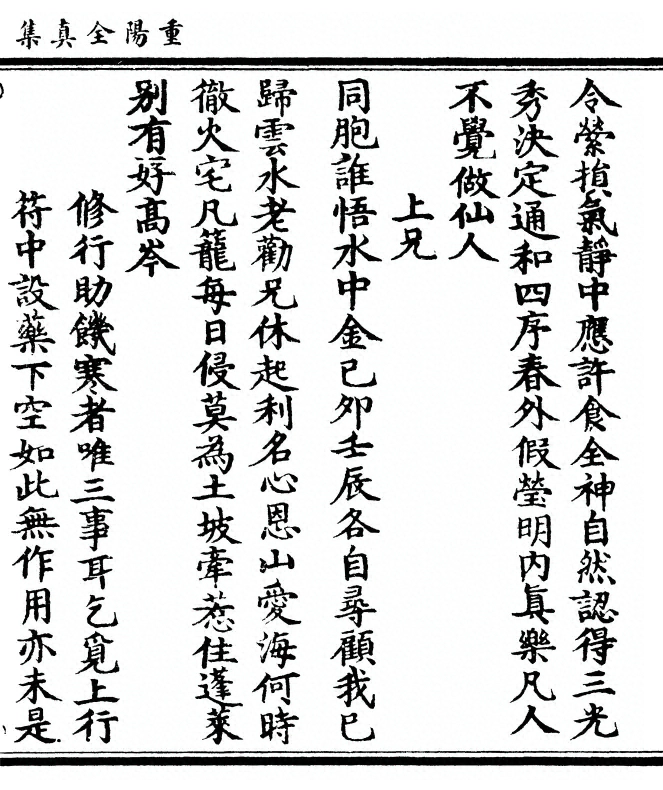 重陽全真集
令縈損氣靜中應許食全神自然認得三光
秀決定通和四序春外假瑩明內真樂凡人
不覺做仙人
上兄
同胞誰悟水中金己卯壬辰各自尋顧我已
歸雲水老勸兄休起利名心恩山愛海何時
徹火宅凡籠每日侵莫為土坡牽惹住蓬萊
別有好高岑
修行助饑寒者唯三事耳乞覓上行
符中設藥下空如此無作用亦未是